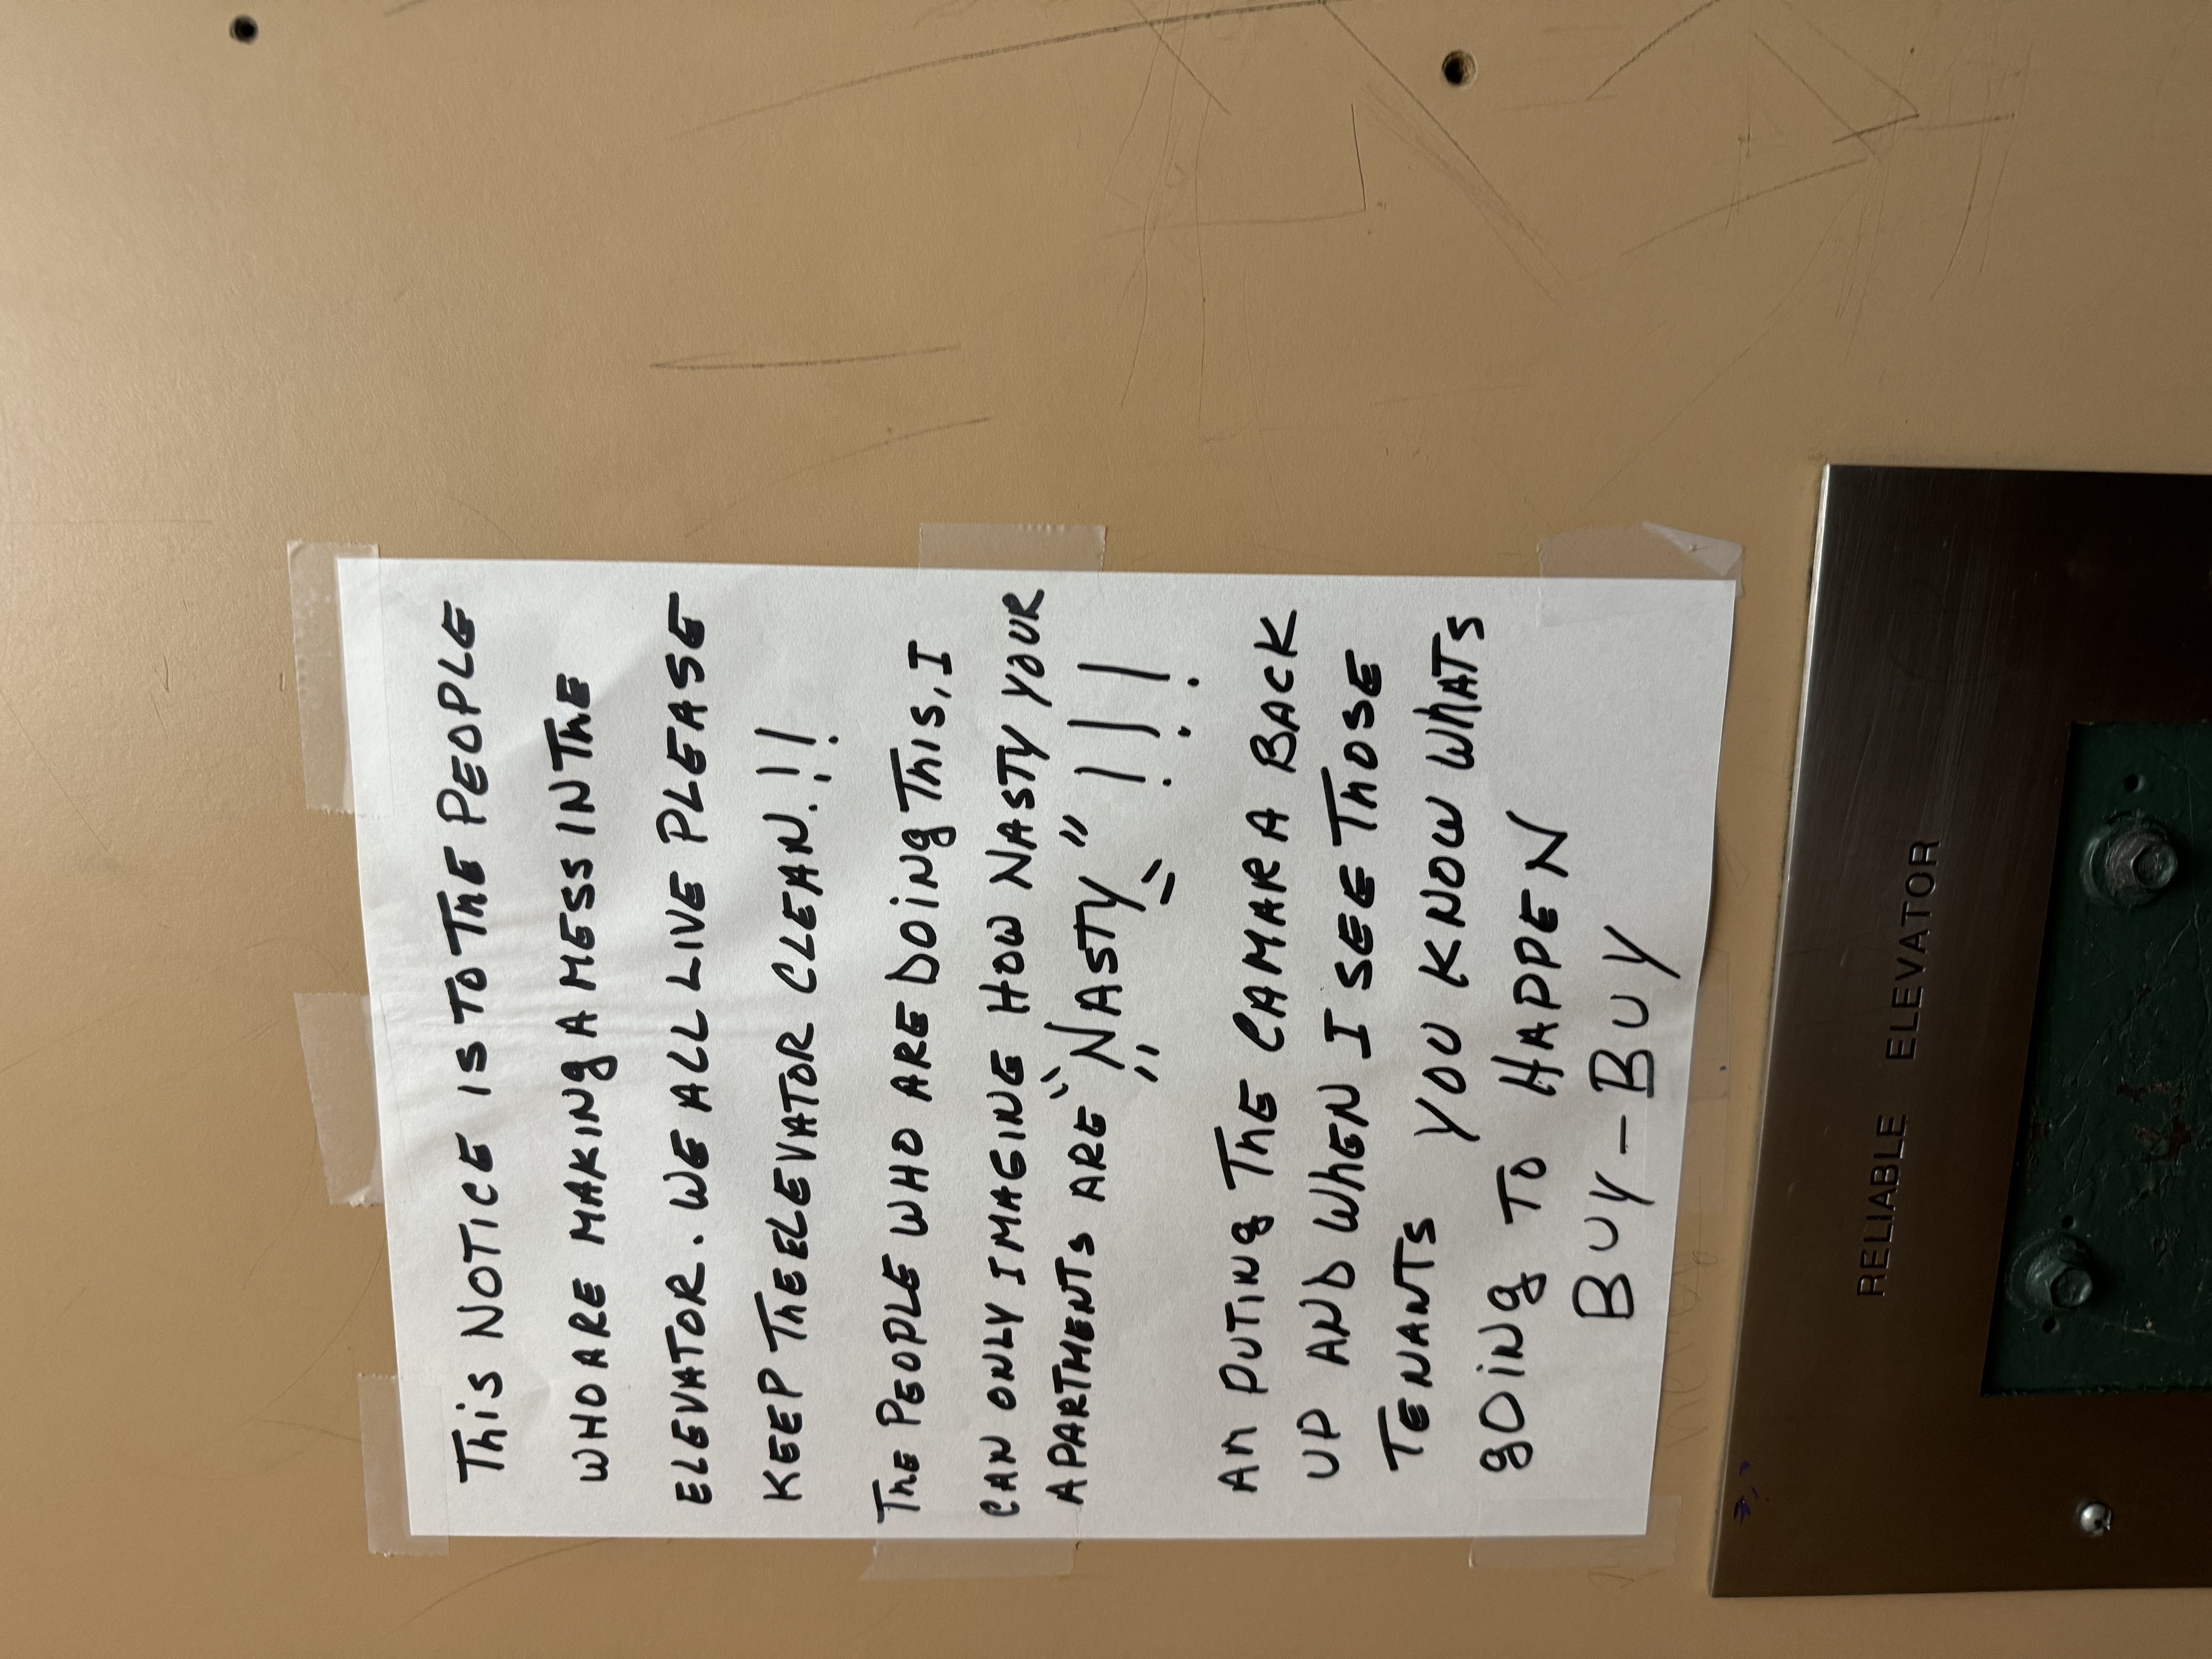 This NOTICE IS TO ThE PEOPLE
WHO ARE MAKINg A MESS IN ThE
ELEVATOR. WE ALL LIVE PLEASE
KEEP ThE ELEVATOR CLEAN.!!
ThE PEOPLE WHO ARE DOiNg This, I
CAN ONLY IMAGINE HOW NASTY YOUR
APARTMENTS ARE "NASTY" !!!
AM PUTiNg ThE CAMARA BACK
UP AND WhEN I SEE ThOSE
TENANTS YOU KNOW WhATS
gOiNg TO HAPPEN
BUY-BUY
RELIABLE ELEVATOR